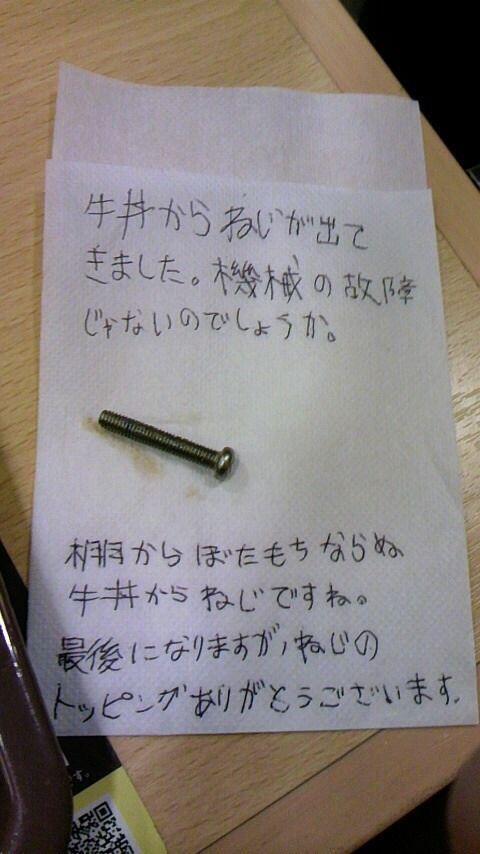 牛丼からねじが出て
きました。機械の故障
じゃないのでしょうか。
棚からぼたもちならぬ
牛丼からねじですね。
最後になりますが、ねじの
トッピングありがとうございます。
す。